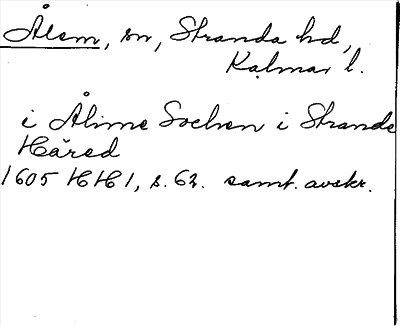 Ålem, sn, Stranda hd,
Kalmar l.
i Ålime Sochen i Strande
Häred
1605 HH1, s. 62. samt. avskr.